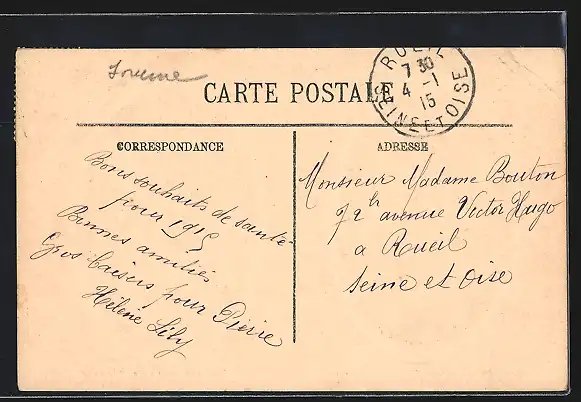 CARTE POSTALE
RUEIL
7 30
4 -1
15
SEINE ET OISE
CORRESPONDANCE
Bons souhaits de santé
pour 1915
Bonnes amitiés
Gros baisers pour Pierre
Hélène Lily
ADRESSE
Monsieur Madame Bouton
72 avenue Victor Hugo
a Rueil
Seine et Oise